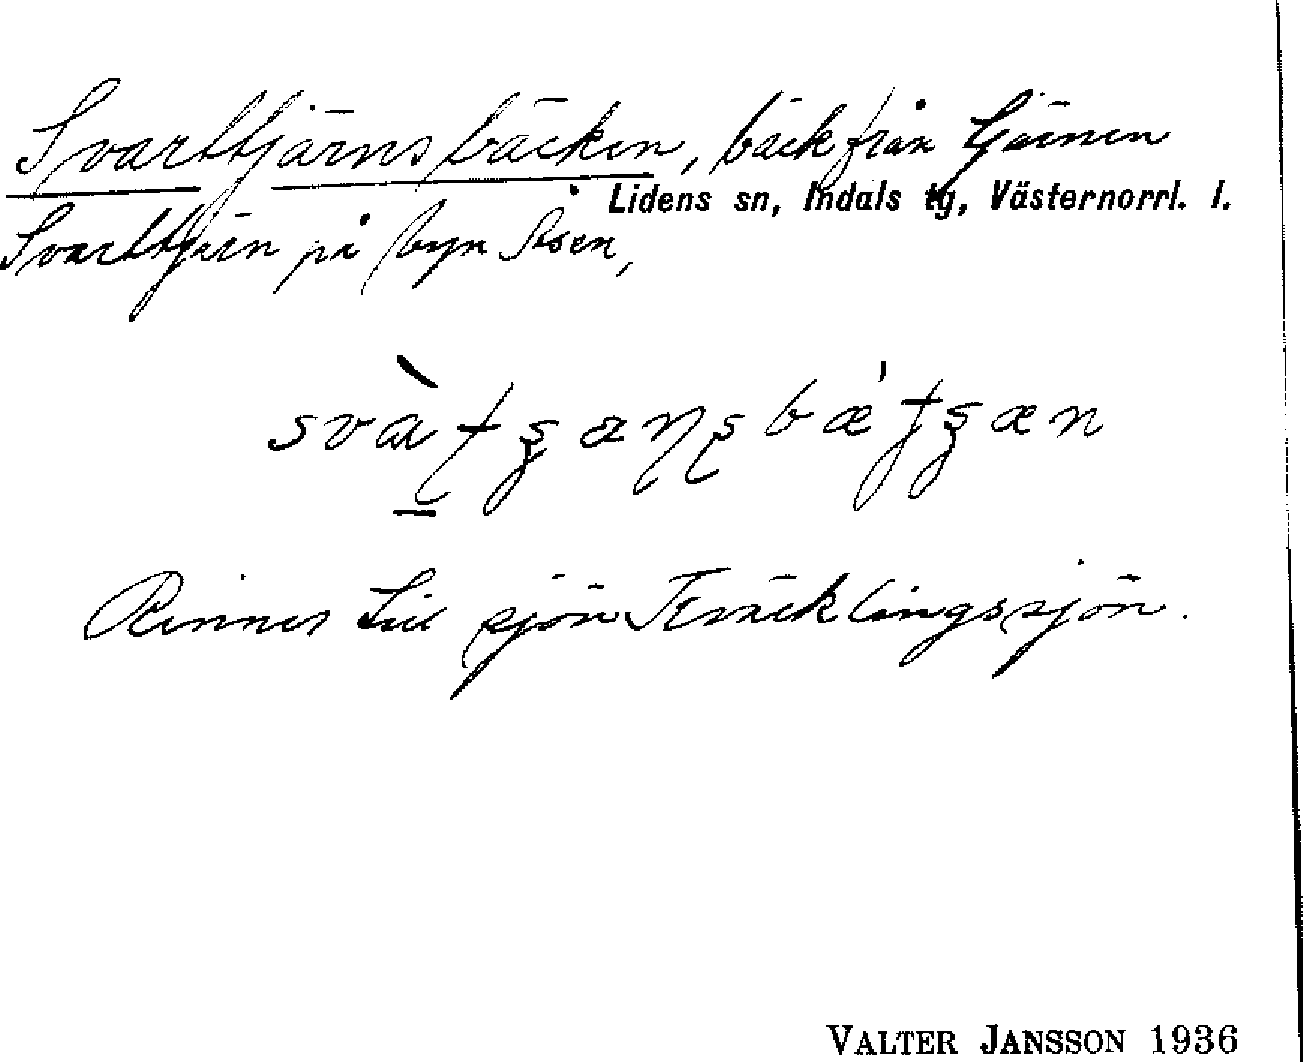 Svarttjärnsbäcken, bäck från tjärnen
Lidens sn, Indals tg, Västernorrl. l.
Svarttjärn på byn Åsen,
Rinner till sjön Kväcklingssjön.
VALTER JANSSON 1936